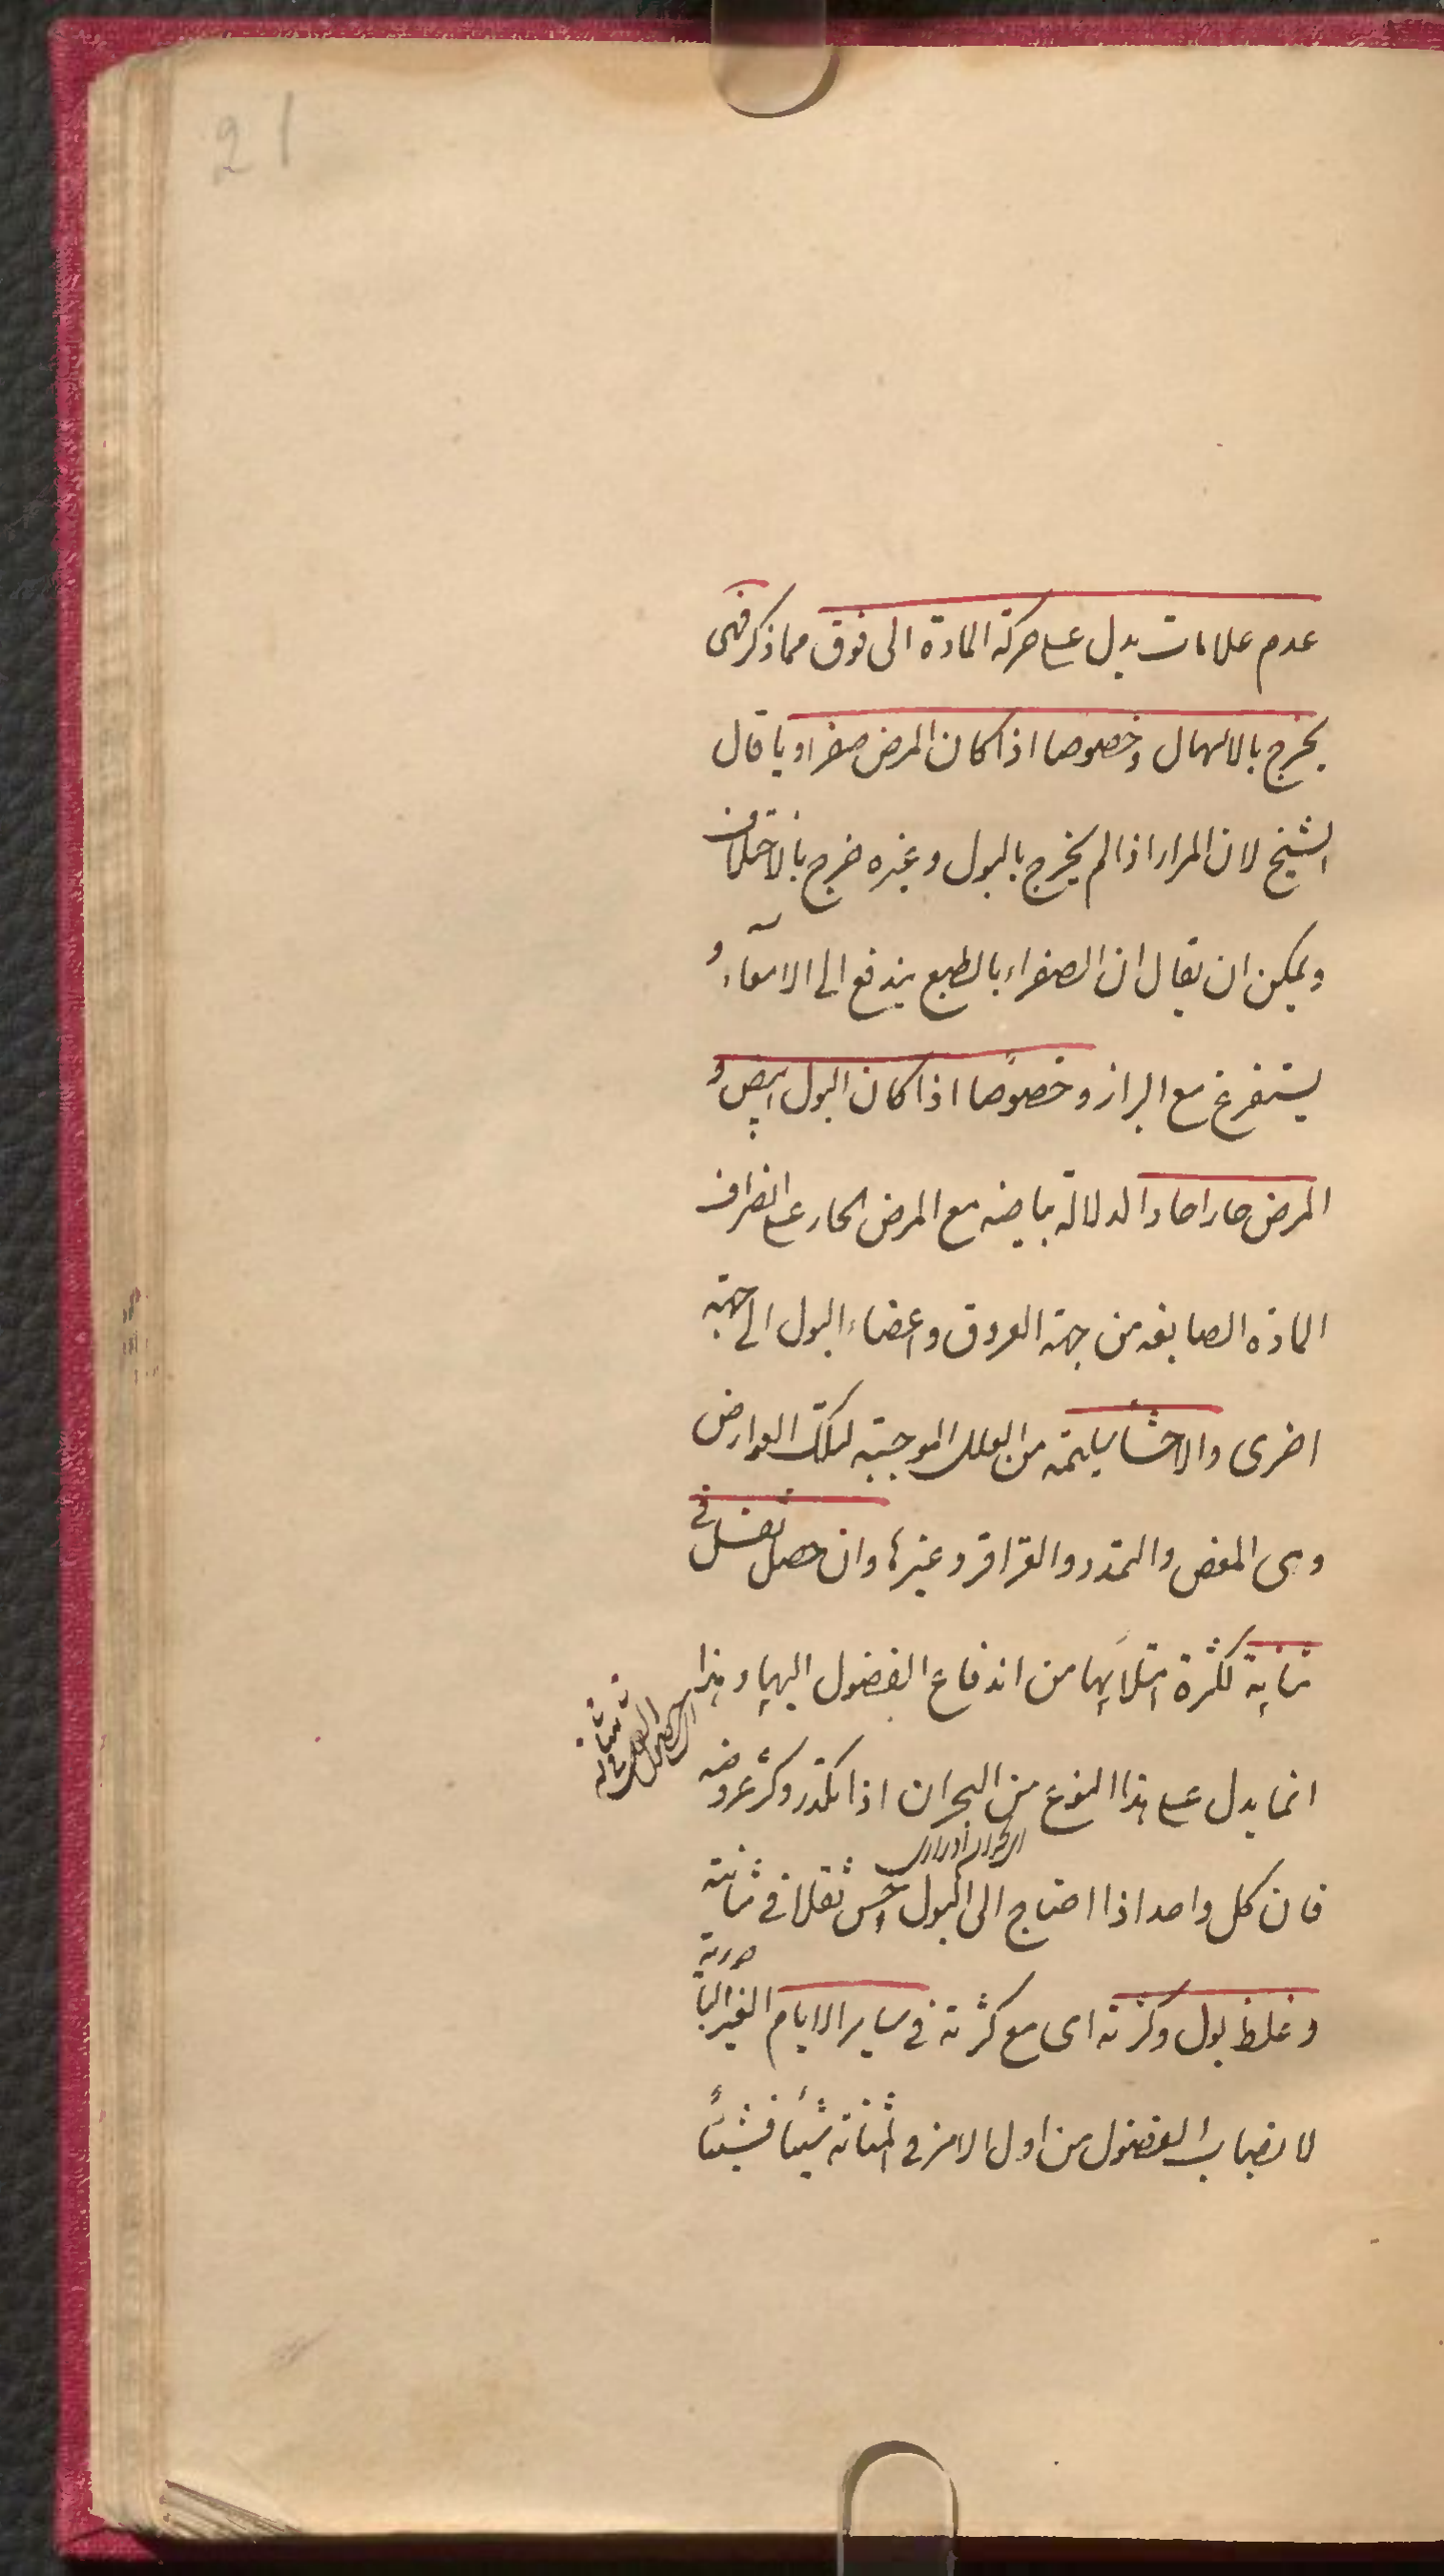 21
عدم علامات يدل على حركة المادة الى فوق مما ذكر فهى
يخرج بالاسهال وخصوصا اذا كان المرض صفراويا قال
الشيخ لان المرار اذا لم يخرج بالبول وغيره خرج بالاختلاف
ويمكن ان يقال ان الصفراء بالطبع يندفع الى الامعآء و
يستفرغ مع البراز وخصوصًا اذا كان البول ابيض و
المرض حارا حادا لدلالة بياضه مع المرض الحار على انصراف
المادة الصابغه من جهة العروق واعضاء البول الى جهة
اخرى والاحشأ سليمة من العلل الموجبة لتلك العوارض
وهى المغص والتمدد والقراقر وغيرها وان حصل ثقل فى
مثانة لكثرة امتلايها من اندفاع الفضول اليها وهذا
اى حصول الثقل فى المثانة
انما يدل على هذا النوع من البحران اذا تكدر وكثر عروضه
فان كل واحد اذا احتاج الى البول احس ثقلا فى مثانته
وغلظ بول وكثرته اى مع كثرته فى ساير الايام الغير البا
حورية
لانصباب الفضول من اول الامر فى المثانة شيئا فشيئًا